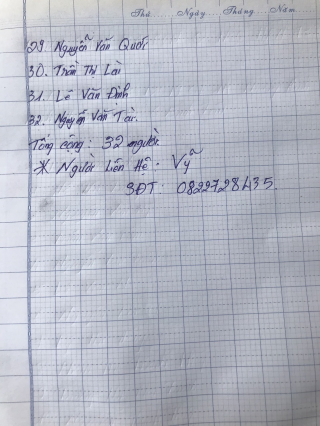 Thứ Ngày Tháng Năm
29. Nguyễn Văn Quốc
30. Trần Thị Lài
31. Lê Văn Định
32. Nguyễn Văn Tài.
Tổng cộng: 32 người.
* Người Liên Hệ: Vỹ
SĐT: 0822728435.